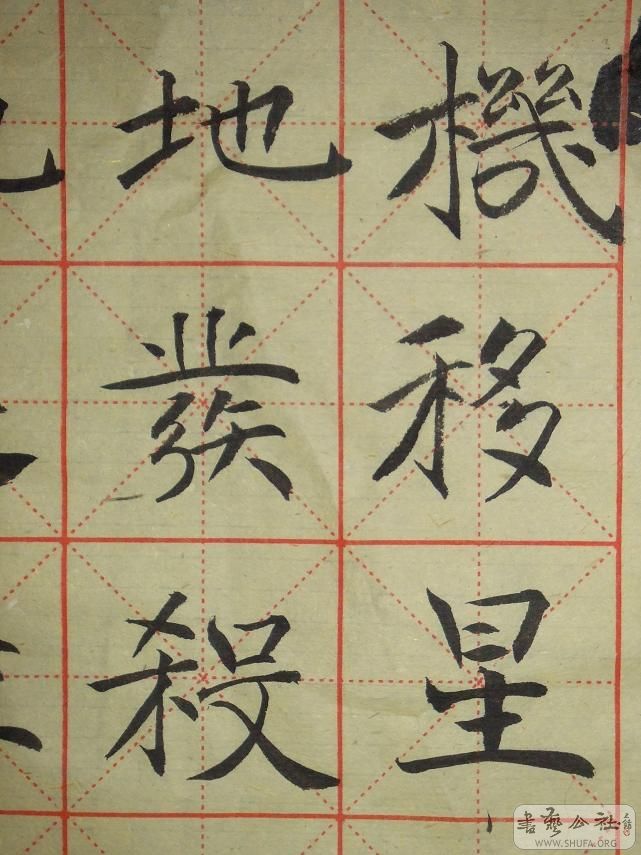 機移星
地發殺
書藝公社
WWW.SHUFA.ORG